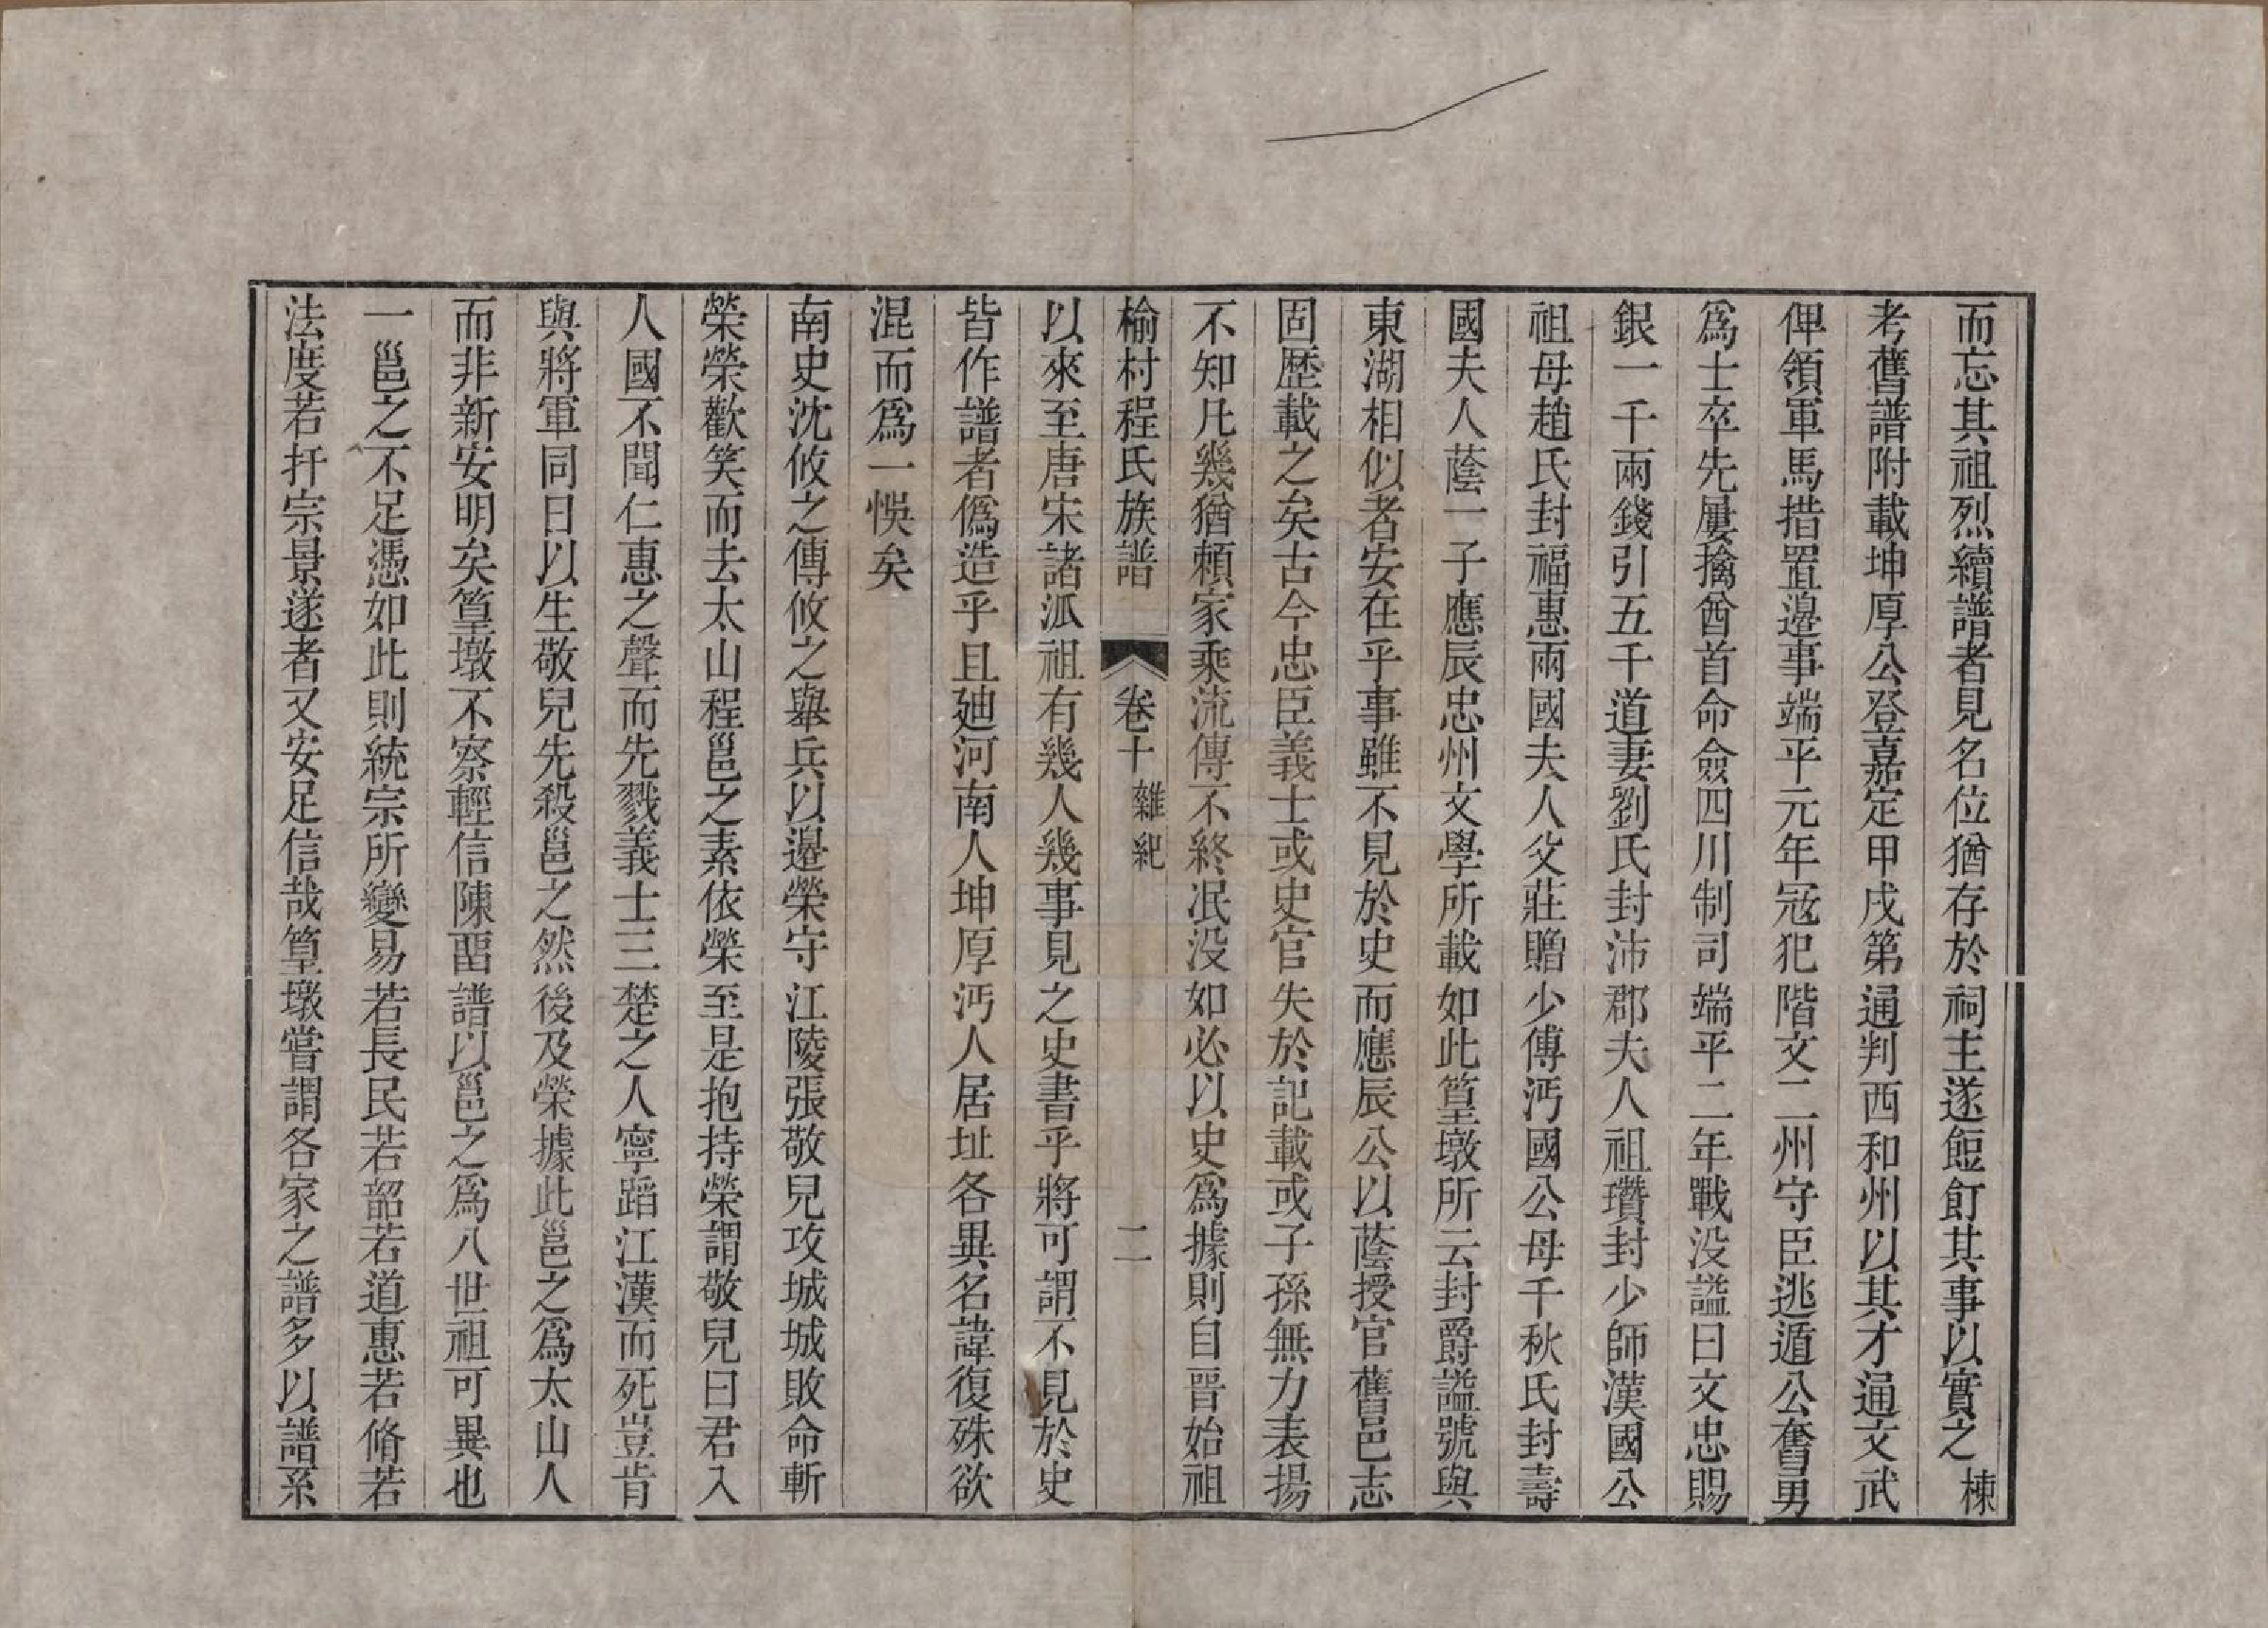 而忘其祖烈續譜者見名位猶存於祠主遂餖飣其事以實之棟
考舊譜附載坤厚公登嘉定甲戌第通判西和州以其才通文武
俾領軍馬措置邊事端平元年冦犯階文二州守臣逃遁公奮勇
爲士卒先屢擒酋首命僉四川制司端平二年戰没謚曰文忠賜
銀一千兩錢引五千道妻劉氏封沛郡夫人祖瓚封少師漢國公
祖母趙氏封福惠兩國夫人父莊贈少傅沔國公母千秋氏封壽
國夫人蔭一子應辰忠州文學所載如此篁墩所云封爵謚號與
東湖相似者安在乎事雖不見於史而應辰公以蔭授官舊邑志
固歷載之矣古今忠臣義士或史官失於記載或子孫無力表揚
不知凡幾猶頼家乘流傳不終冺没如必以史爲據則自晋始祖
榆村程氏族譜 卷十 雜紀 二
以來至唐宋諸派祖有幾人幾事見之史書乎將可謂不見於史
皆作譜者僞造乎且廸河南人坤厚沔人居址各異名諱復殊欲
混而爲一悞矣
南史沈攸之傳攸之舉兵以邊榮守江陵張敬兒攻城城敗命斬
榮榮歡笑而去太山程邕之素依榮至是抱持榮謂敬兒曰君入
人國不聞仁惠之聲而先戮義士三楚之人寧蹈江漢而死豈肯
與將軍同日以生敬兒先殺邕之然後及榮據此邕之爲太山人
而非新安明矣篁墩不察輕信陳畱譜以邕之爲八世祖可異也
一邕之不足憑如此則統宗所變易若長民若韶若道惠若脩若
法度若扞宗景遂者又安足信哉篁墩嘗謂各家之譜多以譜系